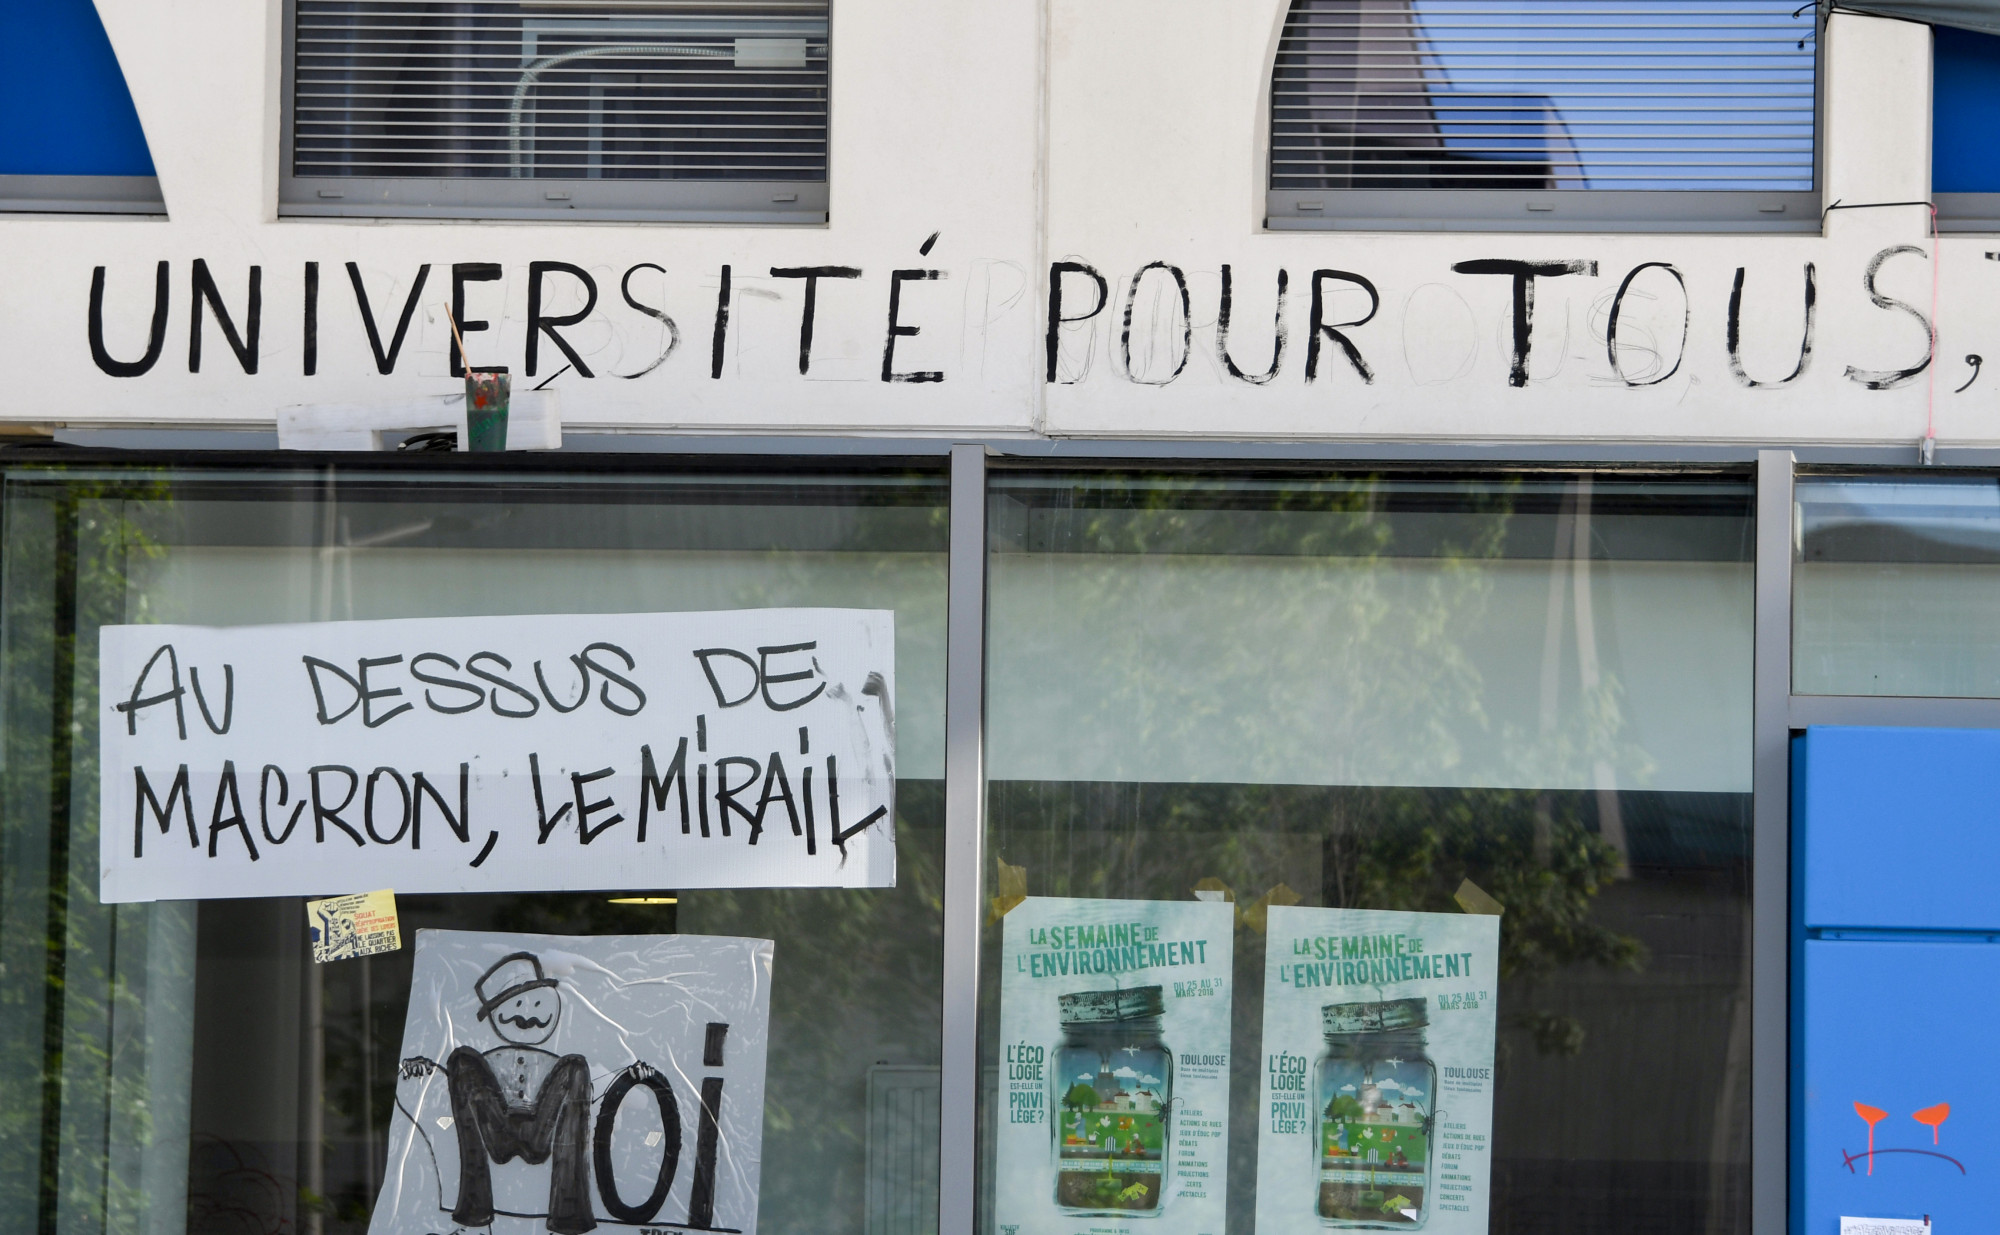 UNIVERSITÉ POUR TOUS,
AU DESSUS DE
MACRON, LE MIRAIL
SQUAT
NE LAISSONS PAS
LE QUARTIER
AUX RICHES
MOi
LA SEMAINE DE
L'ENVIRONNEMENT
DU 25 AU 31
MARS 2018
L'ÉCO
LOGIE
EST-ELLE UN
PRIVI
LÈGE ?
TOULOUSE
ATELIERS
ACTIONS DE RUES
JEUX D'ÉDUC POP
DÉBATS
FORUM
ANIMATIONS
PROJECTIONS
CERTS
SPECTACLES
LA SEMAINE DE
L'ENVIRONNEMENT
DU 25 AU 31
MARS 2018
L'ÉCO
LOGIE
EST-ELLE UN
PRIVI
LÈGE ?
TOULOUSE
ATELIERS
ACTIONS DE RUES
JEUX D'ÉDUC POP
DÉBATS
FORUM
ANIMATIONS
PROJECTIONS
CONCERTS
SPECTACLES